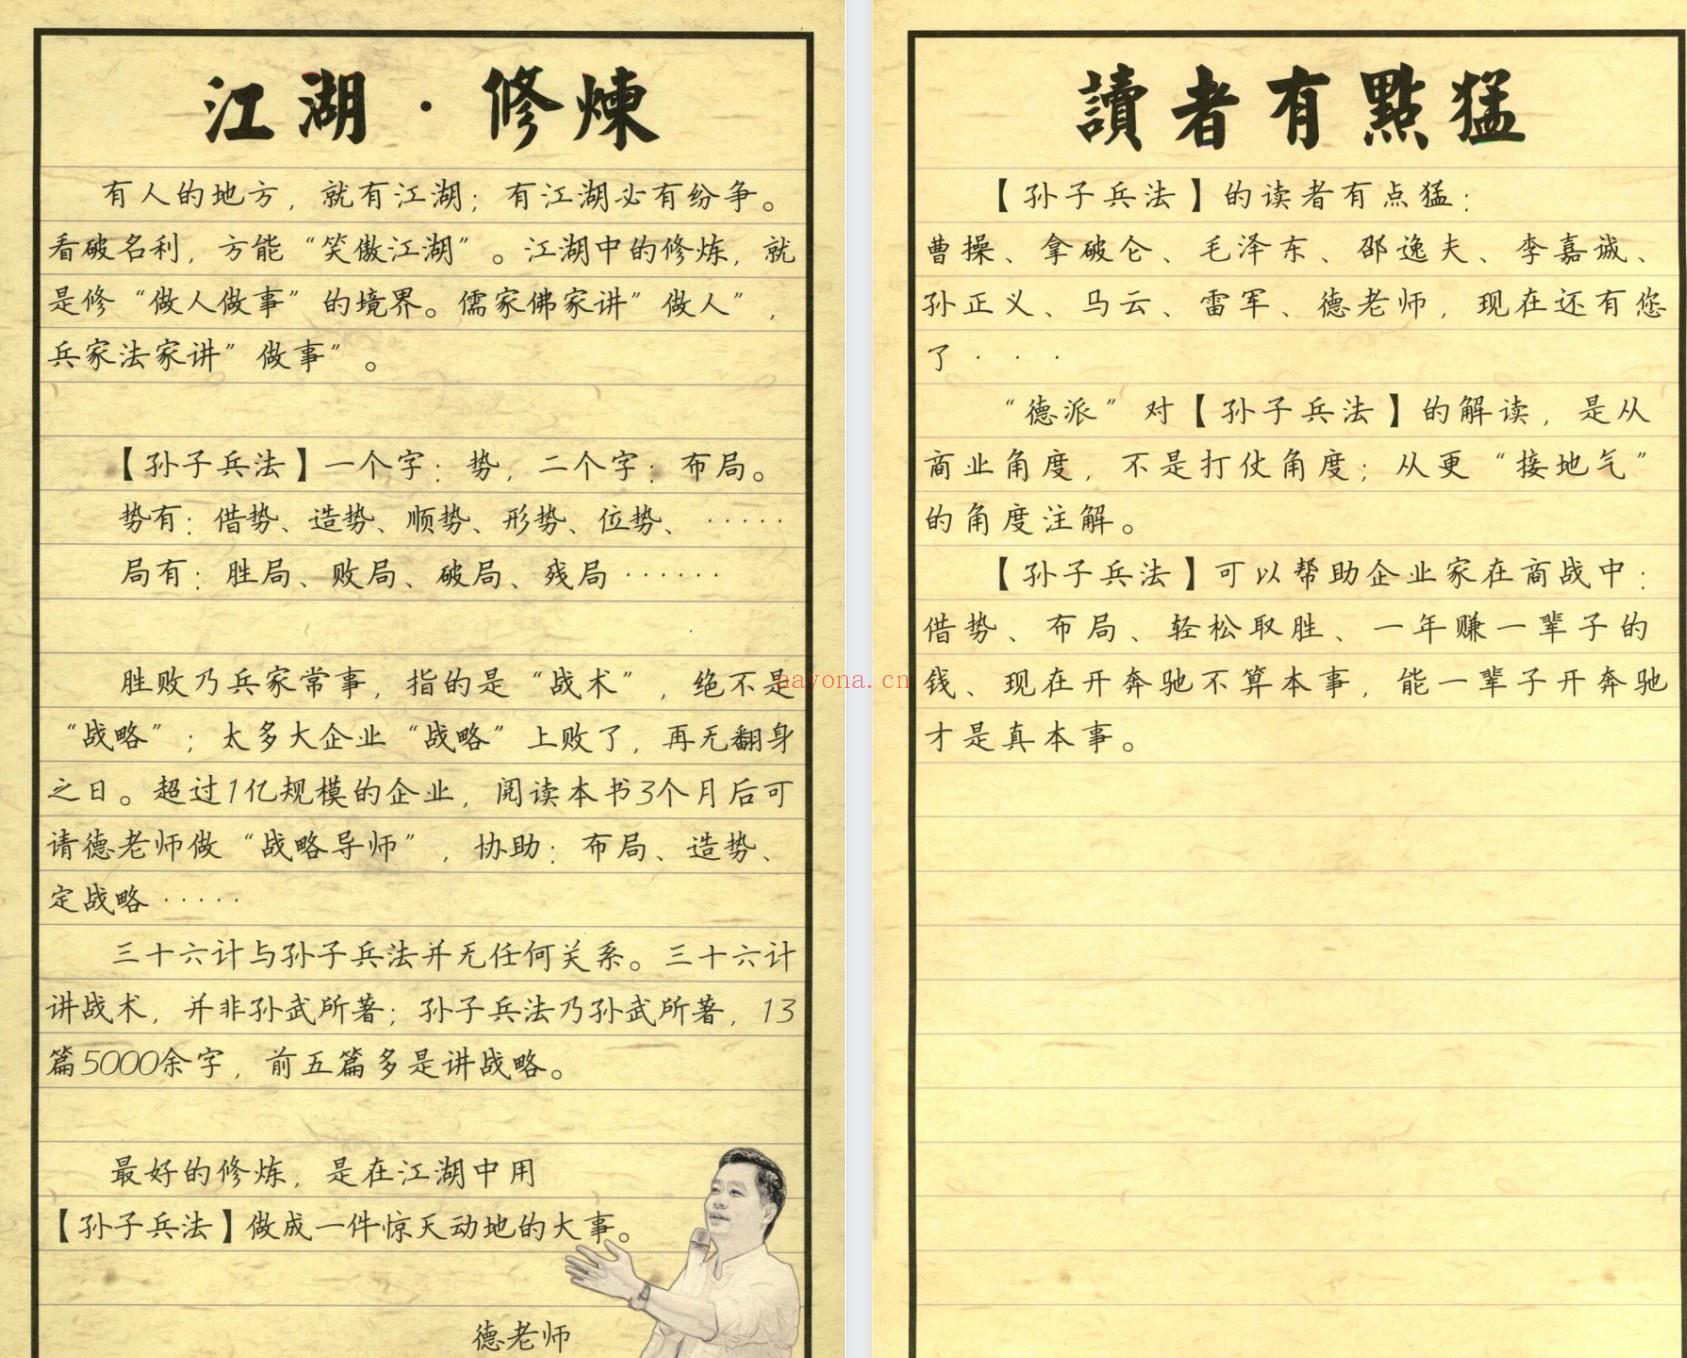 江湖·修煉
有人的地方，就有江湖；有江湖必有纷争。
看破名利，方能“笑傲江湖”。江湖中的修炼，就
是修“做人做事”的境界。儒家佛家讲”做人”，
兵家法家讲”做事”。
【孙子兵法】一个字：势，二个字：布局。
势有：借势、造势、顺势、形势、位势、·····
局有：胜局、败局、破局、残局······
胜败乃兵家常事，指的是“战术”，绝不是
“战略”；太多大企业“战略”上败了，再无翻身
之日。超过1亿规模的企业，阅读本书3个月后可
请德老师做“战略导师”，协助：布局、造势、
定战略·····
三十六计与孙子兵法并无任何关系。三十六计
讲战术，并非孙武所著；孙子兵法乃孙武所著，13
篇5000余字，前五篇多是讲战略。
最好的修炼，是在江湖中用
【孙子兵法】做成一件惊天动地的大事。
德老师
讀者有點猛
【孙子兵法】的读者有点猛：
曹操、拿破仑、毛泽东、邵逸夫、李嘉诚、
孙正义、马云、雷军、德老师，现在还有您
了···
“德派”对【孙子兵法】的解读，是从
商业角度，不是打仗角度；从更“接地气”
的角度注解。
【孙子兵法】可以帮助企业家在商战中：
借势、布局、轻松取胜、一年赚一辈子的
钱、现在开奔驰不算本事，能一辈子开奔驰
才是真本事。
nayona.cn